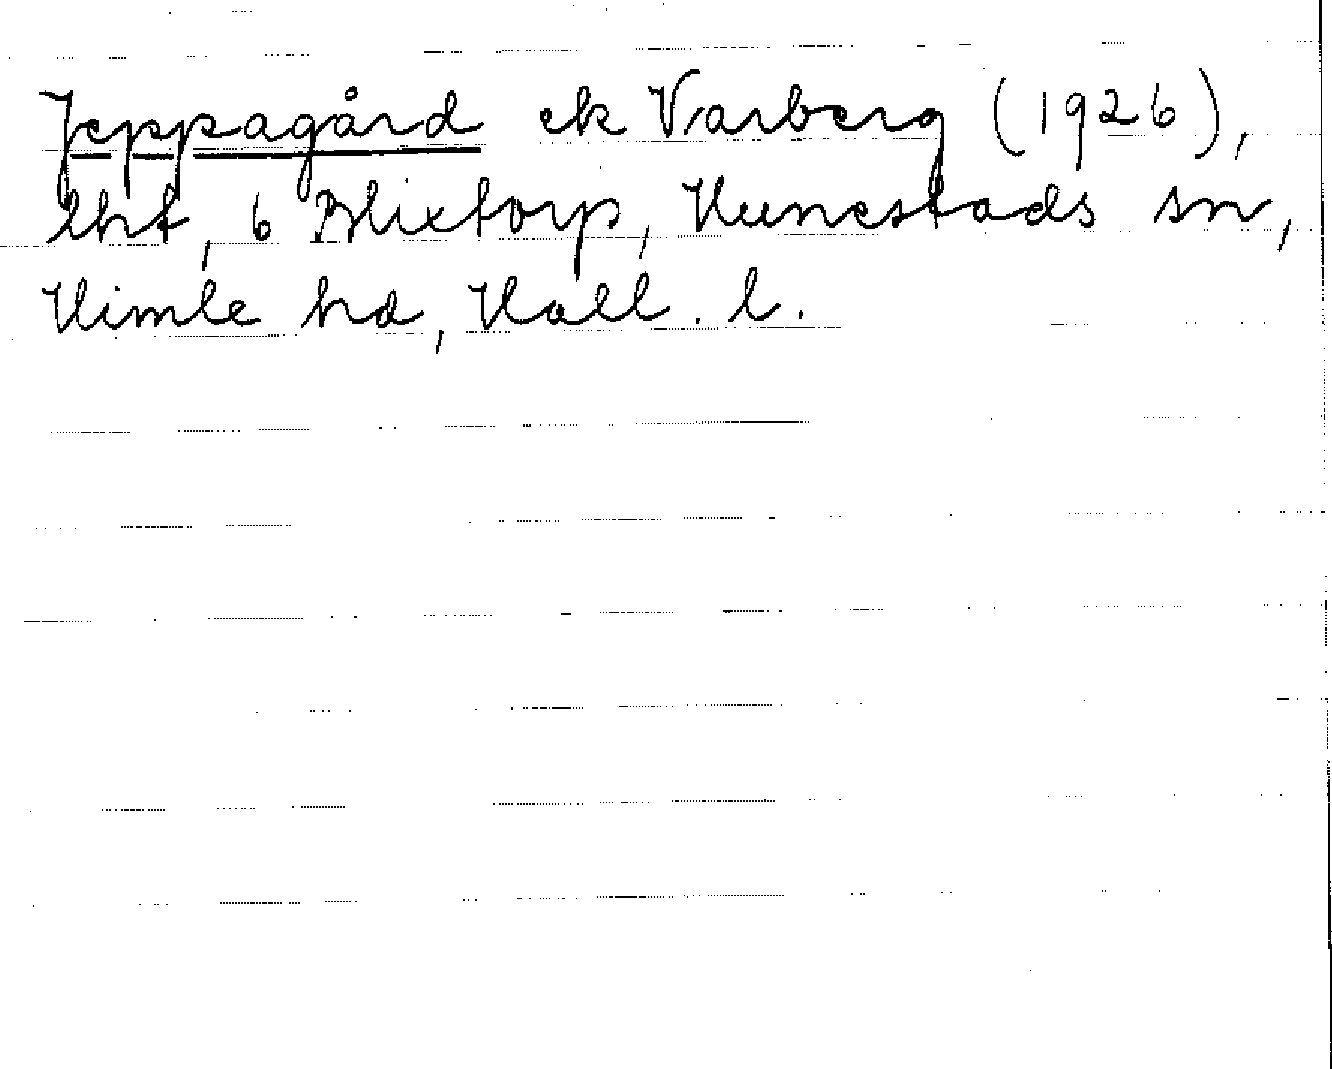 Jeppagård ek Varberg (1926),
lht, 6 Blixtorp, Hunestads sn,
Himle hd, Hall. l.